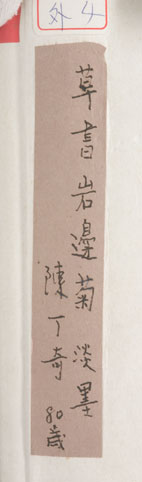 外
草書岩邊菊淡墨
陳丁奇 80歲